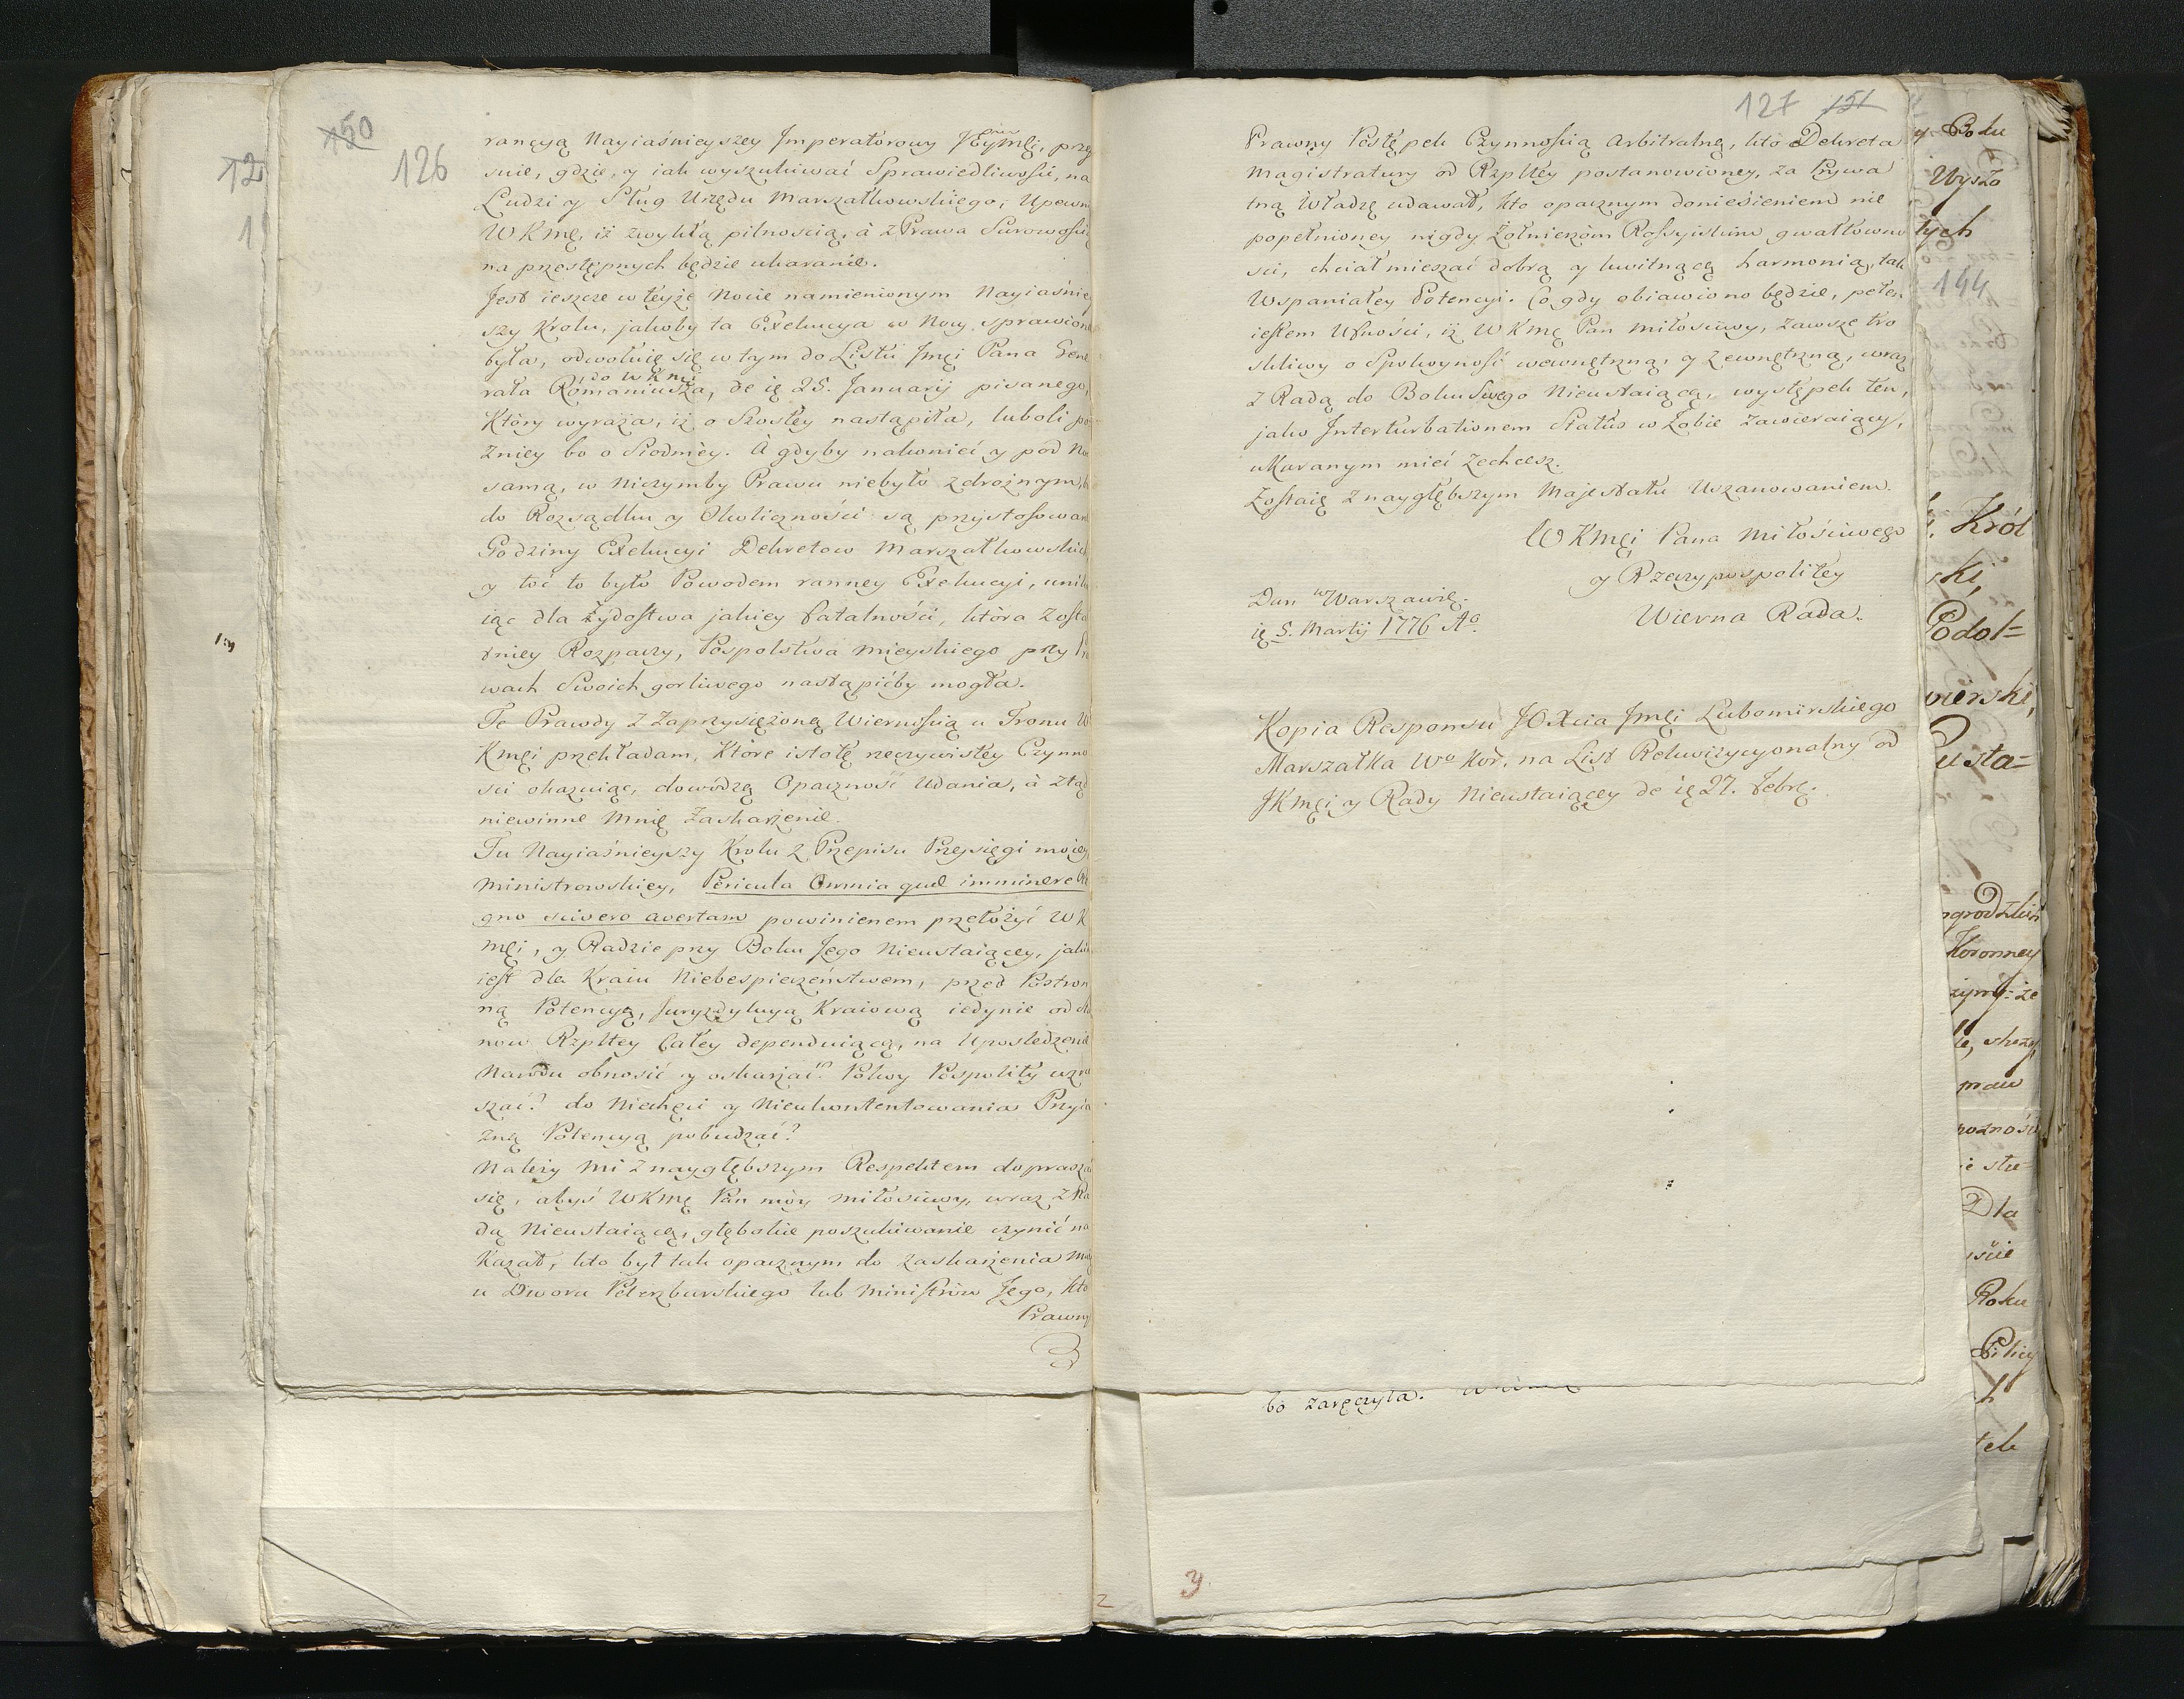 150
126
rancyą Nayiaśnieyszey Imperatorowy JEyMći, prze
snie, gdzie, y iak wyszukiwać Sprawiedliwości, na
Ludzi y Sług Urzędu Marszałkowskiego, Upewn
WKMć, iż zwykłą pilnoscią, à z Prawa Surowoscią
na przestępnych będzie ukaranie.
Jest ieszcze w teyże Nocie namienionym Nayiaśniey
szy Krolu, jakoby ta Exekucya w Nocy sprawiona
była, odwołuię się w tym do Listu Jmći Pana Gene
do WKMći
rała Romaniusza, de ię 25. Januarij pisanego,
Ktory wyraża, iż o Szostey nastąpiła, luboli po
zniey bo o Siodmey. A gdyby nakoniec y pod No
samą, w niczymby Prawu niebyło zdrożnym,
do Rozsądku y Okoliczności są przystosowan
Godziny Exekucyi Dekretow Marszałkowskich
y toć to było Powodem ranney Exekucyi, unik
iąc dla Żydostwa jakiey Fatalności, ktora z osta
tniey Rozpaczy, Pospolstwa mieyskiego przy Pra
wach Swoich gorliwego nastąpićby mogła.
Te Prawdy z Zaprzysiężoną Wiernością u Tronu W
KMći przekładam, Które istotę rzeczywistey Czynno
sci okazuiąc, dowodzą Opaczność Udania, à ztąd
niewinne Mnię Zaskarżenie.
Tu Nayiaśnieyszy Krolu z Przepisu Przysięgi moiey
Ministrowskiey, Pericula Omnia quæ imminere Re
gno scivero avertam powinienem przełożyć WK
Mći, y Radzie przy Boku Jego Nieustaiącey, jakim
iest dla Kraiu Niebespieczeństwem, przed Postron
ną Potencyą, Juryzdykcyą Kraiową iedynie od Sta
now Rzpltey Całey dependuiącą, na Uposledzenie
Narodu obnosić y oskarżać? Pokoy Pospolity wzru
szać? do Niechęci y Nieukontentowania Przyia
zną Potencyą pobudzać?
Należy mi z naygłębszym Respektem dopraszać
się, abyś WKMć Pan móy miłosciwy, wraz z Ra
dą Nieustaiącą, głębokie poszukiwanie czynić na
kazał, kto był tak opacznym do zaskarżenia Mnie
u Dworu Peterzburskiego lub Ministrow Jego, kto
Prawny
127 151
Prawny Postępek Czynnością Arbitralną, kto Dekreta
Magistratury od Rzpltey postanowioney, za Prywa
tną Władzę udawał, kto opacznym doniesieniem nie
popełnioney nigdy Żołnierzom Rossyiskim gwałtowno
sci, chciał mieszać dobrą y kwitnącą harmonią, tak
Wspaniałey Potencyi. Co gdy obiawiono będzie, pełen
iestem Ufności, iż WKMć Pan Miłosciwy, zawsze tro
skliwy o Spokoyność wewnętrzną, y zewnętrzną, wraz
z Radą do Boku Swego Nieustaiącą, występek ten,
jako Interturbationem Status w Sobie Zawieraiący,
ukaranym mieć Zechcesz.
Zostaię z naygłębszym Majestatu Uszanowaniem.
WKMći Pana Miłościwego
y Rzeczypospolitey
Wierna Rada.
Dan w Warszawie.
ię 5. Martij 1776 Aº
Kopia Responsu JOXcia Jmći Lubomirskiego
Marszałka Wº Kor. na List Rekwizycyonalny od
JKMći y Rady Nieustaiącey de ię 27. Febrę.
bo zaręczyła.
3
2
y Boku
tych
144
Król
ski,
Podol=
Pusta=
Koronney
Dla
Roku